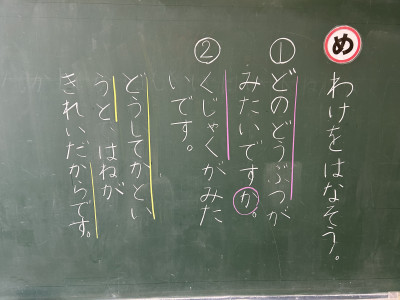 め わけをはなそう。
① どのどうぶつが
みたいですか。
② くじゃくがみた
いです。
どうしてかとい
うと、はねが
きれいだからです。